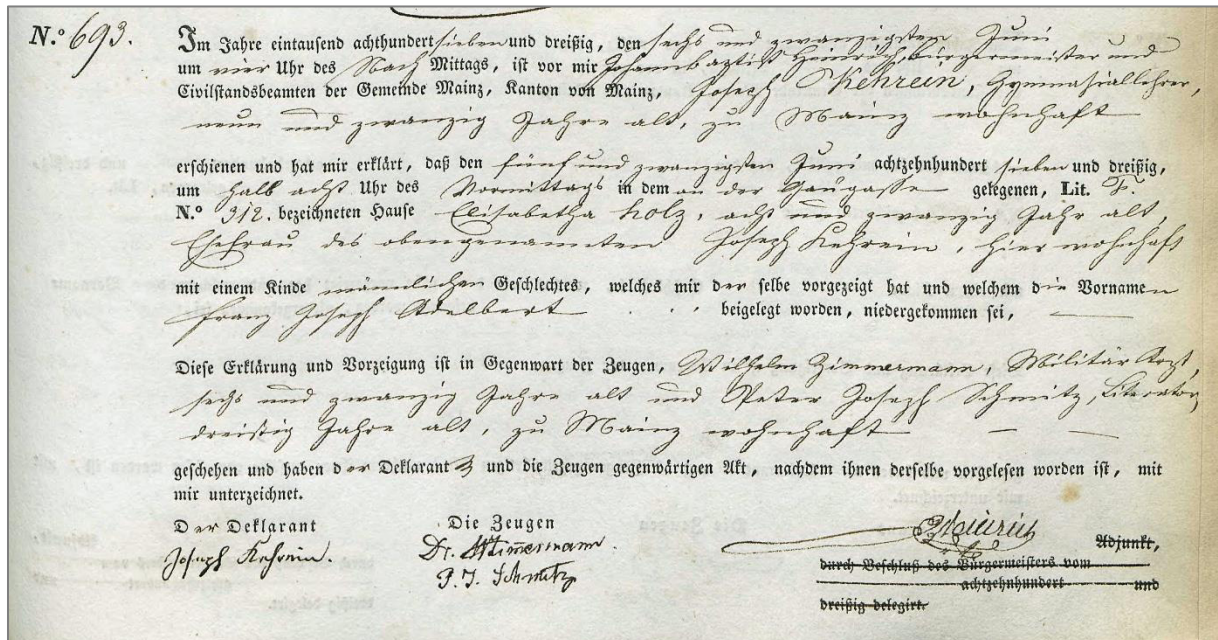 N.º 693.
Im Jahre eintausend achthundert sieben und dreißig, den sechs und zwanzigsten Juni
um vier Uhr des Nach Mittags, ist vor mir Johannbaptist Heinrich, Bürgermeister und
Civilstandsbeamten der Gemeinde Mainz, Kanton von Mainz, Joseph Kehrein, Gymnasiallehrer,
neun und zwanzig Jahre alt, zu Mainz wohnhaft
erschienen und hat mir erklärt, daß den fünf und zwanzigsten Juni achtzehnhundert sieben und dreißig,
um halb acht Uhr des Vormittags in dem an der Gaugasse gelegenen, Lit. F.
N.º 312. bezeichneten Hause Elisabetha Holz, acht und zwanzig Jahr alt,
Ehefrau des obengenannten Joseph Kehrein, hier wohnhaft
mit einem Kinde männlichen Geschlechtes, welches mir der selbe vorgezeigt hat und welchem die Vornamen
Franz Joseph Adelbert beigelegt worden, niedergekommen sei,
Diese Erklärung und Vorzeigung ist in Gegenwart der Zeugen, Wilhelm Zimmermann, Militär Arzt,
sechs und zwanzig Jahre alt und Peter Joseph Schmitz, Literator,
dreißig Jahre alt, zu Mainz wohnhaft
geschehen und haben der Deklarant und die Zeugen gegenwärtigen Akt, nachdem ihnen derselbe vorgelesen worden ist, mit
mir unterzeichnet.
Der Deklarant Die Zeugen
Joseph Kehrein. Dr. Zimmermann Heinrich Adjunkt,
P. J. Schmitz durch Beschluß des Bürgermeisters vom
achtzehnhundert und
dreißig delegirt.